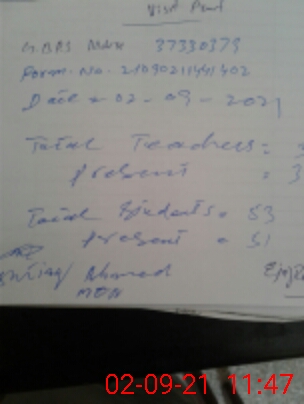 Visit Proof
G.B.P.S 37330379
Form. No. 21090211441402
Date = 02-09-2021
Total Teachers = 3
Present = 3
Total Students = 53
Present = 51
Ahmad
MEA
02-09-21 11:47